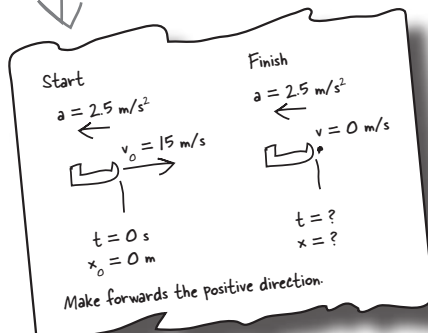 Start
a = 2.5 m/s²
v₀ = 15 m/s
t = 0 s
x₀ = 0 m
Finish
a = 2.5 m/s²
v = 0 m/s
t = ?
x = ?
Make forwards the positive direction.